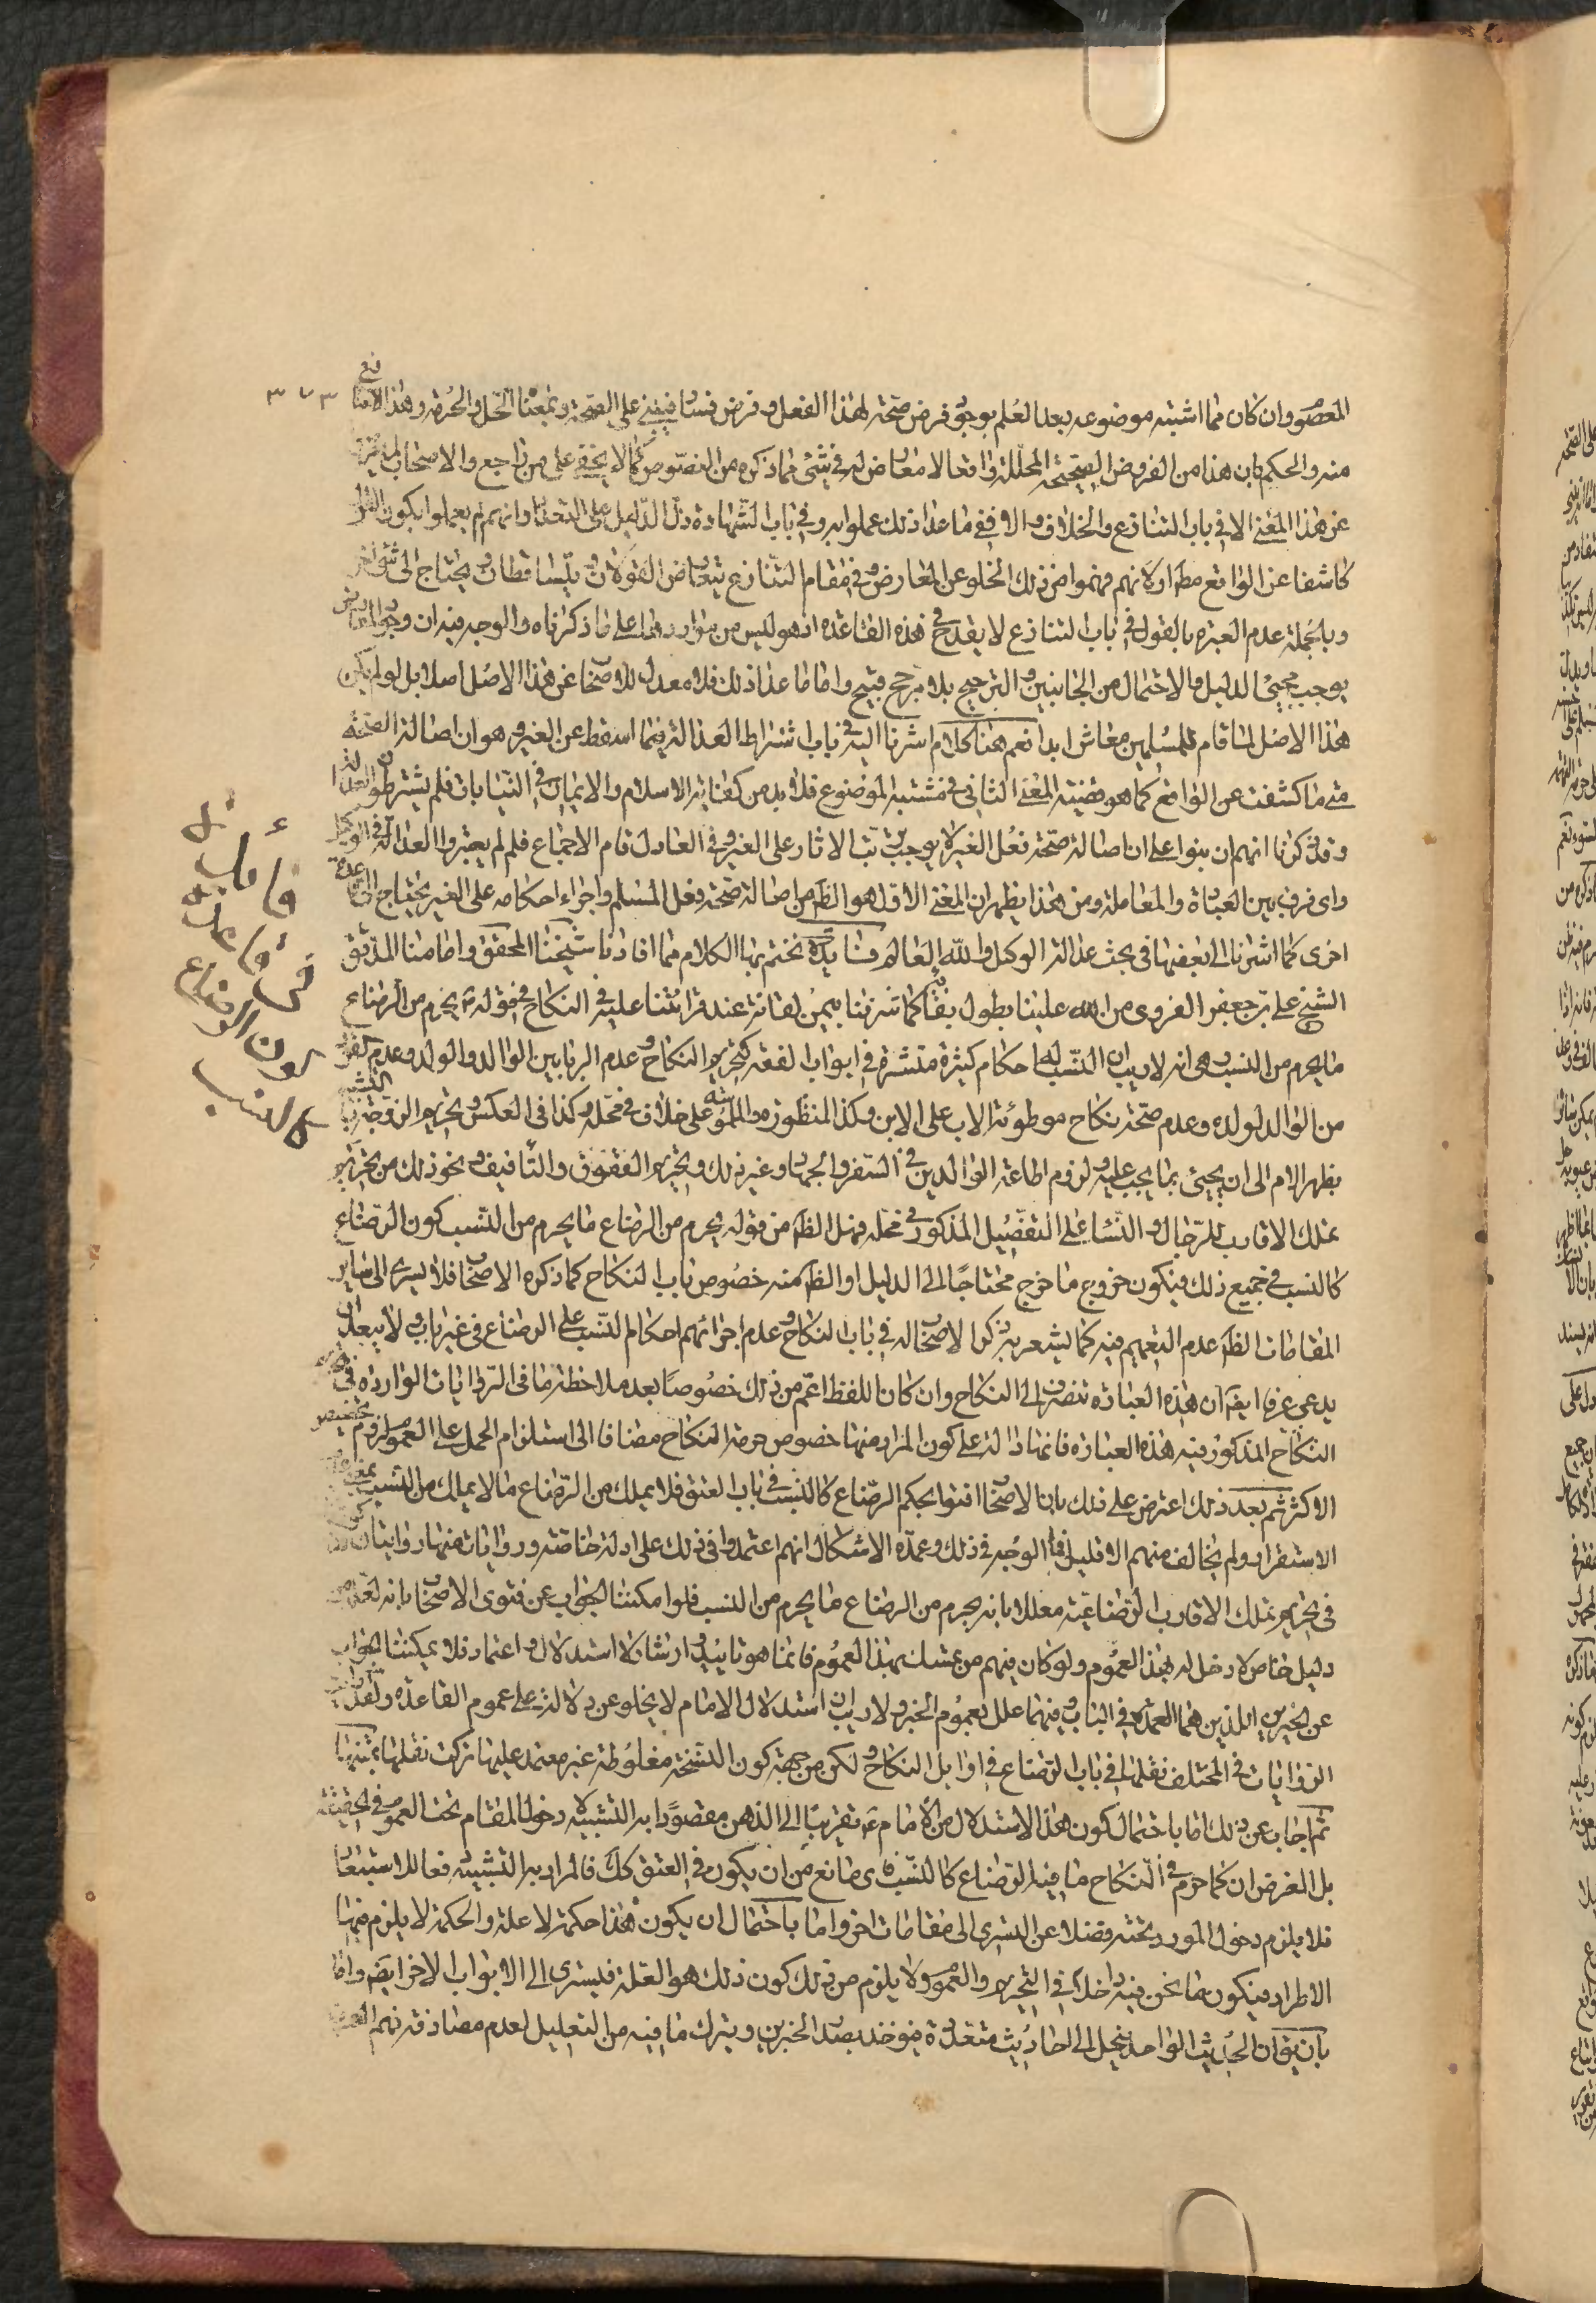 ٣٧٣
المعصوم وان كان مما اشتبه موضوعه بعد العلم بوجود فرض صحة لهذا الفعل وفرض فساد فيبنى على الصحة وبمعنا الحل والحرمة وهذا الامتا
منه والحكم بان هذا من الفروض الصحيحة المحللة واقعا لا معارض له في شئ مما ذكره من النصوص كما لا يخفى على من راجع والاصحاب لم
عن هذا المعنى الا في باب التنازع والخلاف والا ففي ما عدا ذلك عملوا به وفي باب الشهادة دل الدليل على التعداد وانهم لم يعملوا بكون القول
كاشفا عن الواقع مط اولا نهم فهموا من ذلك الخلو عن المعارض وفي مقام التنازع يتعارض القولان ويتساقطان ويحتاج الى شئ اخر
وبالجملة عدم العبرة بالقول في باب التنازع لا يقدح في هذه القاعدة اذ هو ليس من مواردها على ما ذكرناه والوجه فيه ان وجود المعارض
يوجب مجيئ الدليل والاحتمال من الجانبين والترجيح بلا مرجح قبيح واما ما عدا ذلك فلا معدل للاصحاب عن هذا الاصل اصلا بل لو لم يكن
هذا الاصل لما قام للمسلمين معاش ابدا نعم هنا كلام اشرنا اليه في باب اشتراط العدالة فيما اسقط عن الغير وهو ان اصالة الصحة
متى ما كشفت عن الواقع كما هو قضية المعنى الثاني في مشتبه الموضوع فلا بد من كفاية الاسلام والايمان في النيابات فلم يشترطون العدالة
وقد ذكرنا انهم ان بنوا على ان اصالة صحة فعل الغير لا يوجب ترتب الاثار على الغير وفي العادل قام الاجماع فلم لم يعتبروا العدالة في الوكيل
واى فرق بين العبادة والمعاملة ومن هذا يظهر ان المعنى الاول هو الظ من اصالة صحة فعل المسلم واجراء احكامه على الغير يحتاج الى قاعدة
اخرى كما اشرنا الى بعضها في بحث عدالة الوكيل والله العالم فائدة نختم بها الكلام مما افادنا شيخنا المحقق وامامنا المدقق
الشيخ على بن جعفر الغروى من الله علينا بطول بقائه كما شرفنا بيمن لقائه عند قرائتنا عليه في النكاح في قوله ص يحرم من الرضاع
ما يحرم من النسب وهى انه لا ريب ان النسب له احكام كثيرة منتشرة في ابواب الفقه كتحريم النكاح وعدم الربا بين الوالد والولد وعدم القود
من الوالد لولده وعدم صحة نكاح موطوئة الاب على الابن وكذا المنظورة والملموسة على خلاف في محله وكذا في العكس وتحريم الزوجة بالتشبيه
بظهر الام الى ان يجيئ بما يجب عليه ولزوم اطاعة الوالدين في السفر والجهاد وغير ذلك وتحريم العقوق والتأفيف ونحو ذلك من تحريم
تملك الاقارب للرجال والنساء على التفصيل المذكور في محله فهل الظ من قوله يحرم من الرضاع ما يحرم من النسب كون الرضاع
كالنسب في جميع ذلك فيكون خروج ما خرج محتاجا الى الدليل او الظ منه خصوص باب النكاح كما ذكره الاصحاب فلا يسرى الى ساير
المقامات الظ عدم التعميم فيه كما يشعر به ذكر الاصحاب له في باب النكاح وعدم اجرائهم احكام النسب على الرضاع في غير بابه ولا يبعد ان
يدعى عرفا ايضا ان هذه العبارة تنصرف الى النكاح وان كان اللفظ اعم من ذلك خصوصا بعد ملاحظة ما في الروايات الواردة في
النكاح المذكور فيه هذه العبارة فانها دالة على كون المراد منها خصوص حرمة النكاح مضافا الى استلزام الحمل على العموم لزوم تخصيص
الاكثر ثم بعد ذلك اعترض على ذلك بان الاصحاب افتوا بحكم الرضاع كالنسب في باب العتق فلا يملك من الرضاع ما لا يملك من النسب بمعنى
الاستقرار ولم يخالف منهم الا قليل فما الوجه في ذلك وعمدة الاشكال انهم اعتمدوا في ذلك على ادلة خاصة وروايات منها روايتان
في تحريم تملك الاقارب الرضاعية معللا بانه يحرم من الرضاع ما يحرم من النسب فلو امكننا الجواب عن فتوى الاصحاب بانه لعله من
دليل خاص لا دخل له بهذا العموم ولو كان فيهم من تمسك بهذا العموم فانما هو تاييد وارشاد لا استدلال واعتماد فلا يمكننا الجواب
عن الخبرين اللذين هما العمدة في الباب وفيهما علل بعموم الخبر ولا ريب ان استدلال الامام لا يخلو عن دلالة على عموم القاعدة ولعل
الروايات في المختلف نقلها في باب الرضاع في اوايل النكاح ولكن من جهة كون النسخة مغلوطة غير معتمد عليها تركت نقلها بمتنها
ثم اجاب عن ذلك اما باحتمال كون هذا الاستدلال من الامام ع تقريبا الى الذهن مقصودا به التشبيه لا دخول المقام تحت العموم في الحقيقة
بل الغرض ان كما حرم في النكاح ما فيه الرضاع كالنسب فاى مانع من ان يكون في العتق كك فالمراد به التشبيه فعا للاستبعاد
فلا يلزم دخول المورد تحته وفضلا عن السرى الى مقامات اخر واما باحتمال ان يكون هذا حكمة لا علة والحكمة لا يلزم فيها
الاطراد فيكون ما نحن فيه داخلا في التحريم والعموم ولا يلزم من ذلك كون ذلك هو العلة فليسرى الى الابواب الاخر ايضا واما
بان يق ان الحديث الواحد ينحل الى احاديث متعددة فيؤخذ بصدر الخبرين ويترك ما فيه من التعليل لعدم مصادفة فهم
فائدة
في
كون الرضاع
كالنسب